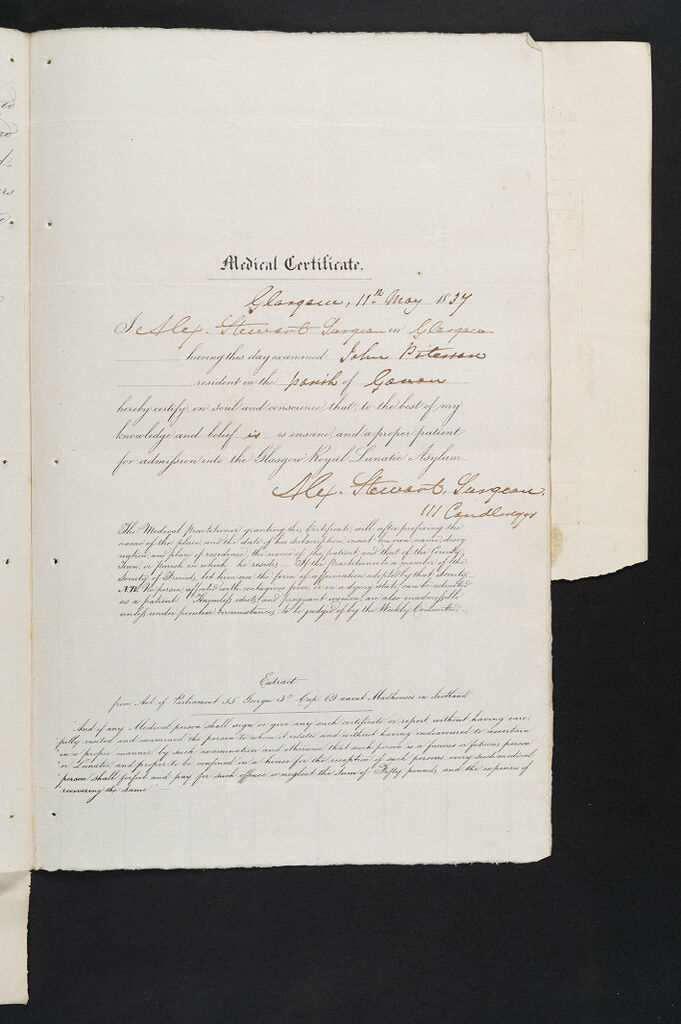 Medical Certificate.
Glasgow, 11th May 1837
I Alex. Stewart Surgeon in Glasgow
having this day examined John Paterson
resident in the parish of Govan
hereby certify on soul and conscience, that to the best of my
knowledge and belief is is insane, and a proper patient
for admission into the Glasgow Royal Lunatic Asylum
Alex. Stewart, Surgeon.
111
The Medical Practitioner granting this Certificate, will after prefixing the
name of the place and the date of his subscription, insert his own name, desig-
nation, and place of residence, the name of the patient and that of the County,
Town, or Parish in which he resides. If the Practitioner be a member of the
Society of Friends, let him use the form of affirmation adopted by that Society.
N.B. No person affected with contagious fever, or in a dying state, can be admitted
as a patient. Harmless idiots, and pregnant women, are also inadmissible
unless under peculiar circumstances, to be judged of by the Weekly Committee.
Extract
from Act of Parliament 55 George 3d Cap 69 anent Madhouses in Scotland
"And if any Medical person shall sign or give any such certificate or report without having care-
fully visited and examined the person to whom it relates and without having endeavoured to ascertain
in a proper manner by such examination and otherwise that such person is a furious or fatuous person
or Lunatic, and proper to be confined in a house for the reception of such persons, every such medical
person shall forfeit and pay for such offence or neglect the sum of Fifty pounds, and the expenses of
recovering the same"